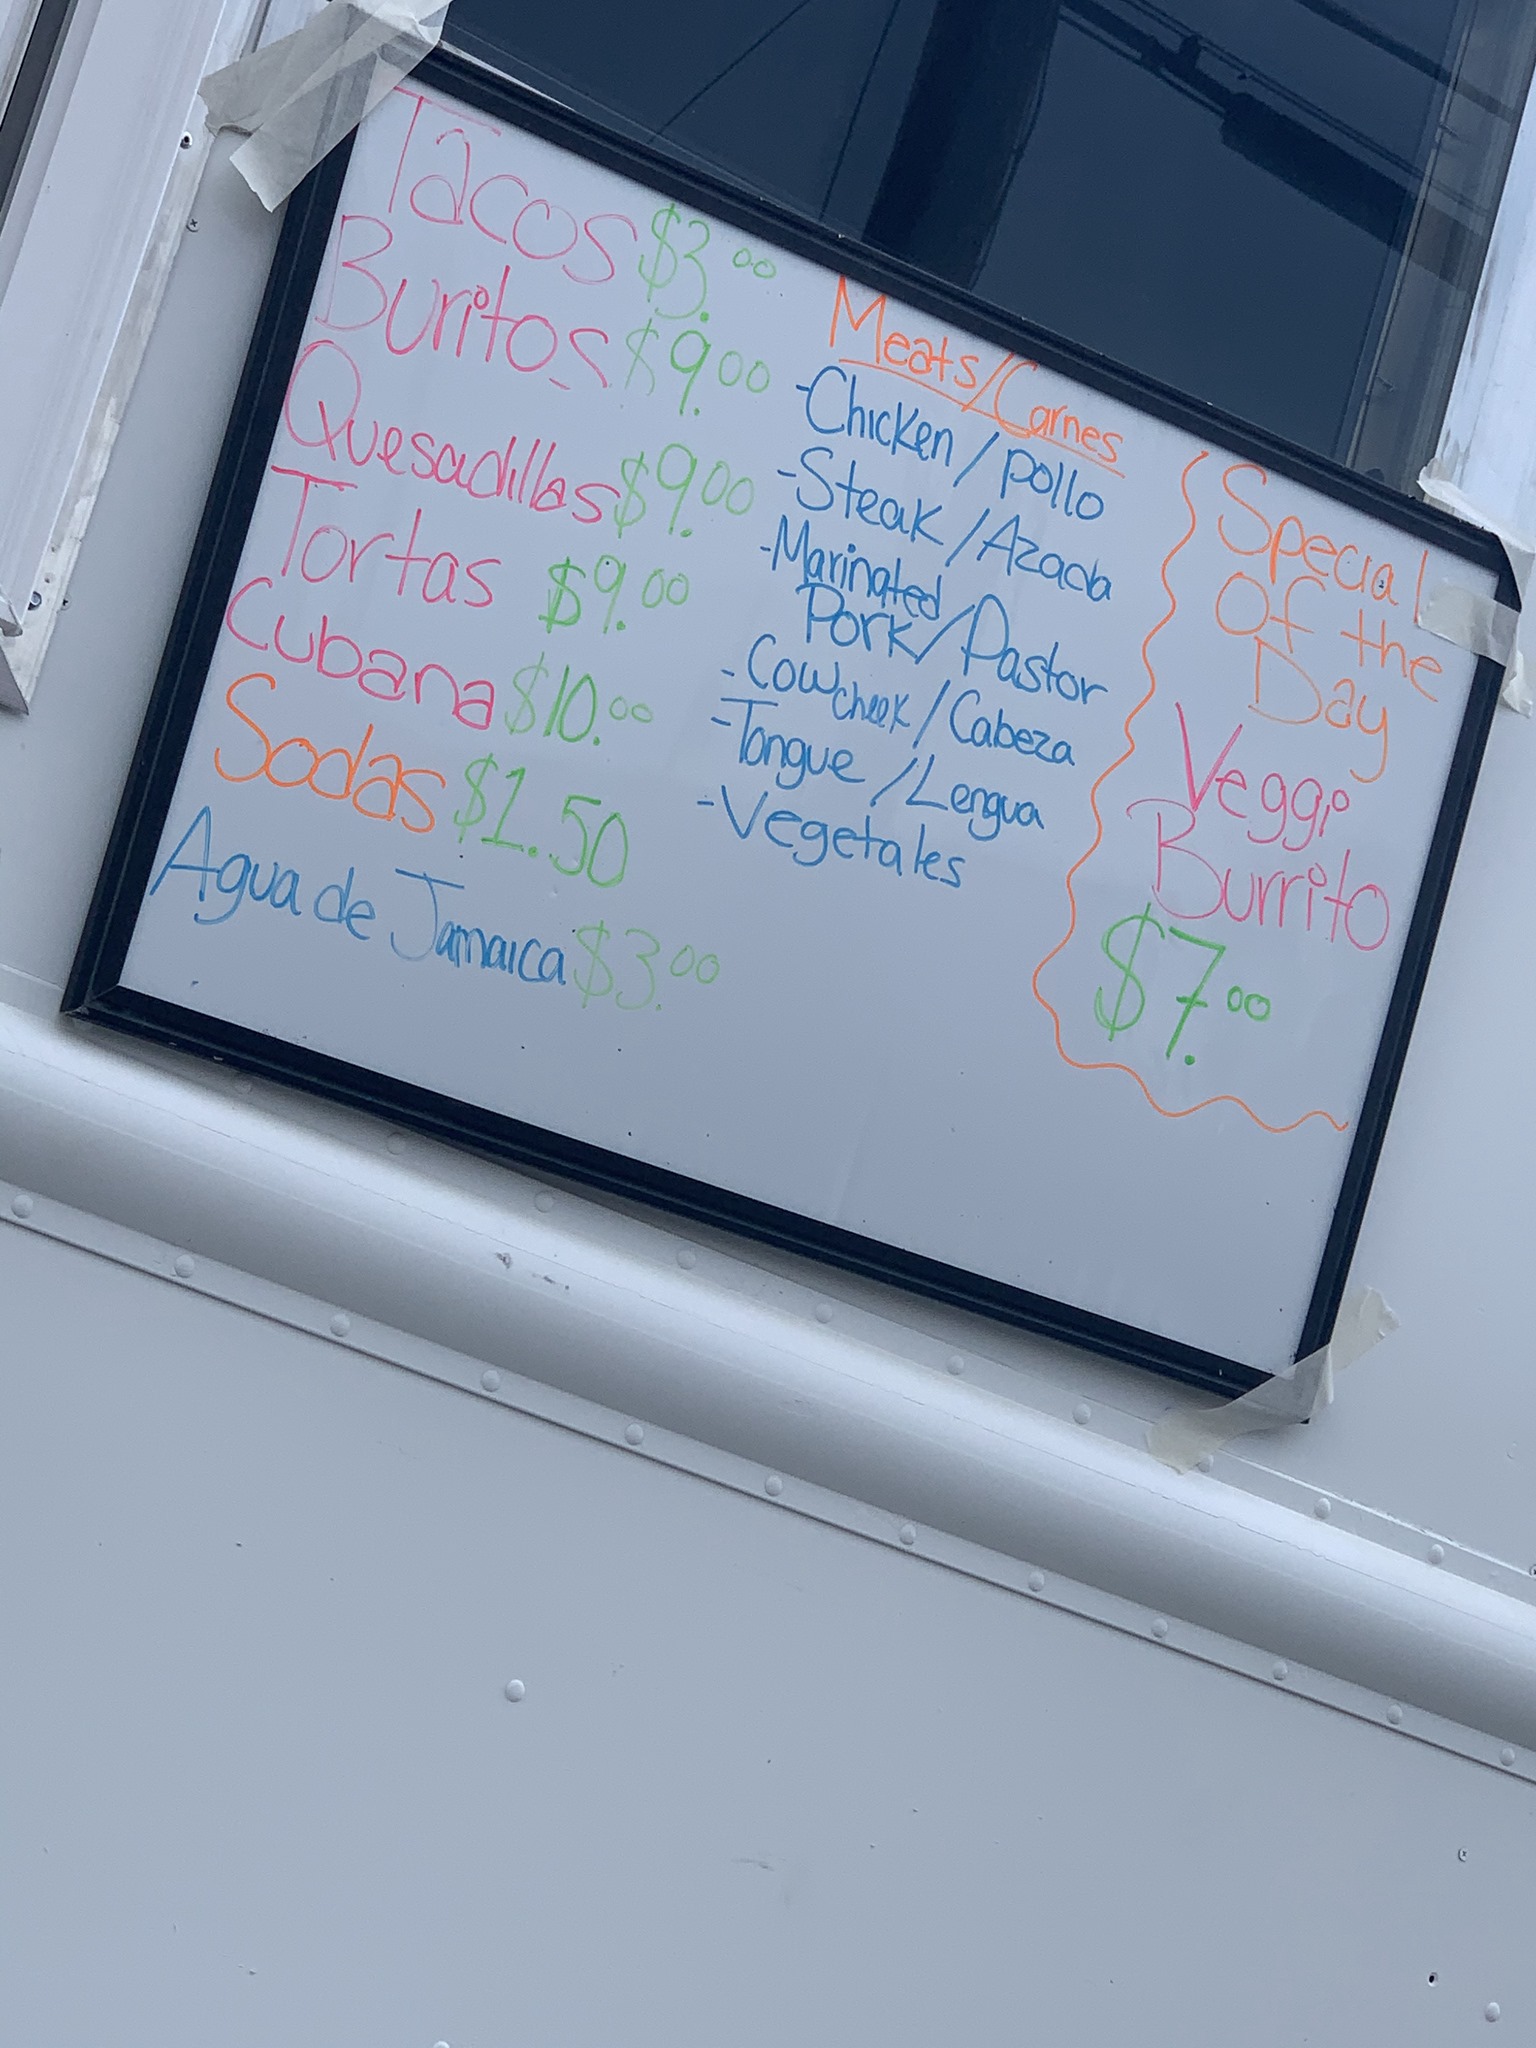 Tacos $3.00
Buritos $9.00
Quesadillas $9.00
Tortas $9.00
Cubana $10.00
Sodas $1.50
Agua de Jamaica $3.00
Meats/Carnes
-Chicken/pollo
-Steak/Azada
-Marinated
Pork/Pastor
-Cow cheek/Cabeza
-Tongue/Lengua
-Vegetales
Special
Of the
Day
Veggi
Burrito
$7.00